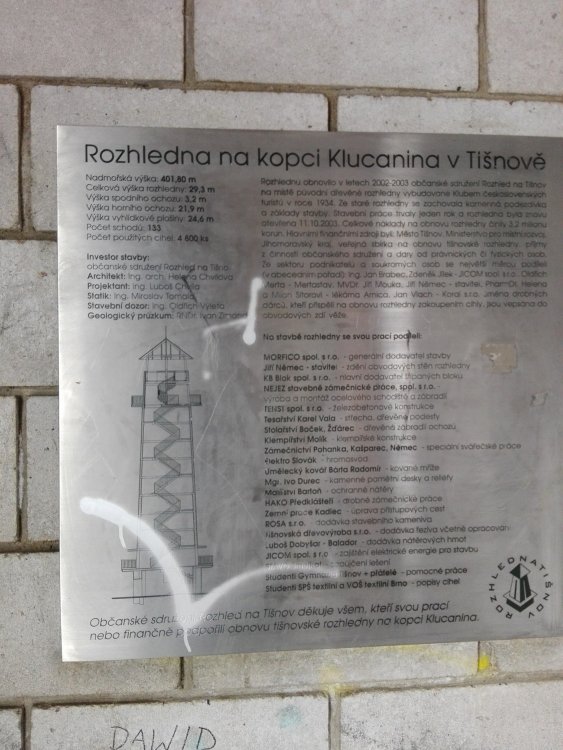 Rozhledna na kopci Klucanina v Tišnově
Nadmořská výška: 401,80 m
Celková výška rozhledny: 29,3 m
Výška spodního ochozu: 3,2 m
Výška horního ochozu: 21,9 m
Výška vyhlídkové plošiny: 24,6 m
Počet schodů: 133
Počet použitých cihel: 4 600 ks
Investor stavby:
občanské sdružení Rozhled na Tišno
Architekt: Ing. arch. Helena Chvílová
Projektant: Ing. Luboš Chvíla
Statik: Ing. Miroslav Tomala
Stavební dozor: Ing. Oldřich Výleta
Geologický průzkum: RNDr. Ivan Zimand
Rozhlednu obnovilo v letech 2002-2003 občanské sdružení Rozhled na Tišnov
na místě původní dřevěné rozhledny vybudované Klubem československých
turistů v roce 1934. Ze staré rozhledny se zachovala kamenná podezdívka
a základy stavby. Stavební práce trvaly jeden rok a rozhledna byla znovu
otevřena 11.10.2003. Celkové náklady na obnovu rozhledny činily 3,2 milionu
korun. Hlavními finančními zdroji byli: Město Tišnov, Ministerstvo pro místní rozvoj,
Jihomoravský kraj, veřejná sbírka na obnovu tišnovské rozhledny, příjmy
z činnosti občanského sdružení a dary od právnických či fyzických osob.
Ze sektoru podnikatelů a soukromých osob se největší měrou podíleli
(v abecedním pořadí): Ing. Jan Brabec, Zdeněk Jílek - JICOM spol. s r.o., Oldřich
Merta - Mertastav, MVDr. Jiří Mouka, Jiří Němec - stavitel, PharmDr. Helena
a Milan Sítařovi - lékárna Arnica, Jan Vlach - Koral s.r.o. Jména drobných
dárců, kteří přispěli na obnovu rozhledny zakoupením cihly, jsou vepsána do
obvodových zdí věže.
Na stavbě rozhledny se svou prací podíleli:
MORFICO spol. s r.o. - generální dodavatel stavby
Jiří Němec - stavitel - zdění obvodových stěn rozhledny
KB Blok spol. s r.o. - hlavní dodavatel štípaných bloků
NEJEZ stavebně zámečnické práce, spol. s r.o. -
výroba a montáž ocelového schodiště a zábradlí
TENST spol. s r.o. - železobetonové konstrukce
Tesařství Karel Vala - střecha, dřevěné podesty
Stolařství Boček, Žďárec - dřevěné zábradlí ochozů
Klempířství Molík - klempířské konstrukce
Zámečnictví Pohanka, Kašparec, Němec - speciální svářečské práce
Elektro Slovák - hromosvod
Umělecký kovář Bárta Radomír - kované mříže
Mgr. Ivo Durec - kamenné pamětní desky a reliéfy
Malířství Bartoň - ochranné nátěry
HAKO Předklášteří - drobné zámečnické práce
Zemní práce Kadlec - úprava přístupových cest
ROSA s.r.o. - dodávka stavebního kameniva
Tišnovská dřevovýroba s.r.o. - dodávka řeziva včetně opracování
Luboš Dobyšar - Balador - dodávka nátěrových hmot
JICOM spol. s r.o. - zajištění elektrické energie pro stavbu
- zapůjčení lešení
Studenti Gymnázia Tišnov + přátelé - pomocné práce
Studenti SPŠ textilní a VOŠ textilní Brno - popisy cihel
Občanské sdružení Rozhled na Tišnov děkuje všem, kteří svou prací
nebo finančně podpořili obnovu tišnovské rozhledny na kopci Klucanina.
ROZHLEDNATIŠNOV
DAWID